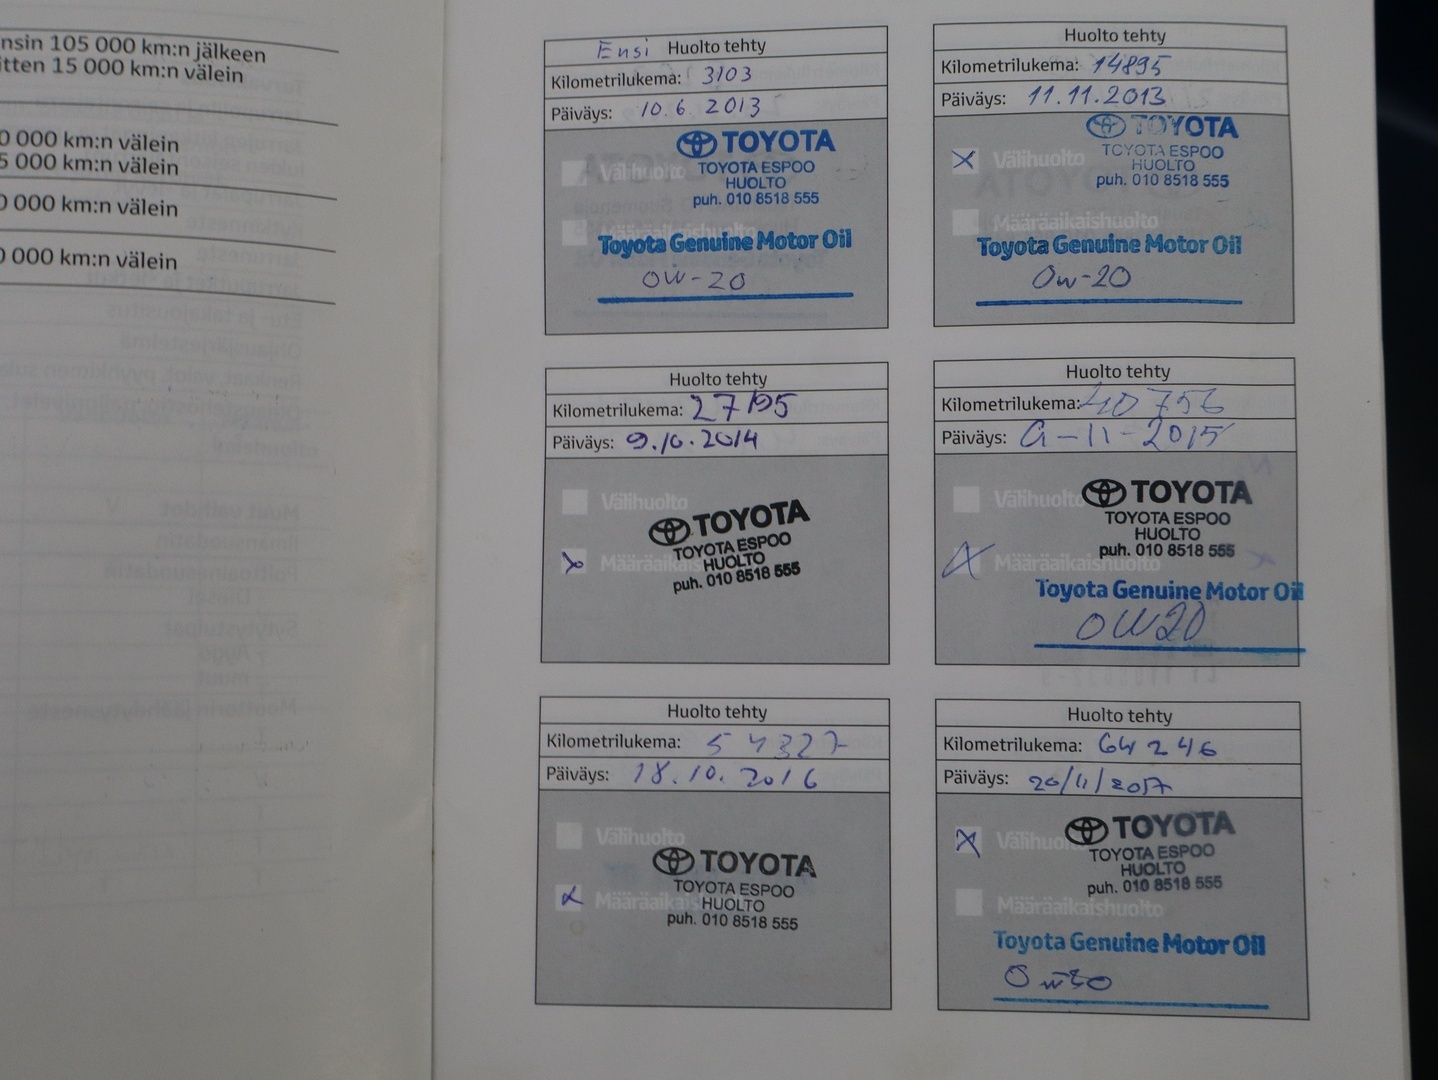 nsin 105 000 km:n jälkeen
itten 15 000 km:n välein
0 000 km:n välein
5 000 km:n välein
0 000 km:n välein
0 000 km:n välein
Ensi Huolto tehty
Kilometrilukema: 3103
Päiväys: 10.6.2013
TOYOTA
Välihuolto
TOYOTA ESPOO
HUOLTO
puh. 010 8518 555
Määräaikaishuolto
Toyota Genuine Motor Oil
0W-20
Huolto tehty
Kilometrilukema: 14895
Päiväys: 11.11.2013
TOYOTA
X Välihuolto
TOYOTA ESPOO
HUOLTO
puh. 010 8518 555
Määräaikaishuolto
Toyota Genuine Motor Oil
0w-20
Huolto tehty
Kilometrilukema: 27195
Päiväys: 9.10.2014
Välihuolto
TOYOTA
TOYOTA ESPOO
X Määräaikaishuolto
HUOLTO
puh. 010 8518 555
Huolto tehty
Kilometrilukema: 40756
Päiväys: -11-2015
Välihuolto
TOYOTA
TOYOTA ESPOO
HUOLTO
puh. 010 8518 555
X Määräaikaishuolto
Toyota Genuine Motor Oil
0W20
Huolto tehty
Kilometrilukema: 54327
Päiväys: 18.10.2016
Välihuolto
TOYOTA
TOYOTA ESPOO
X Määräaikaishuolto
HUOLTO
puh. 010 8518 555
Huolto tehty
Kilometrilukema: 64246
Päiväys: 20/11/2017
TOYOTA
X Välihuolto
TOYOTA ESPOO
HUOLTO
puh. 010 8518 555
Määräaikaishuolto
Toyota Genuine Motor Oil